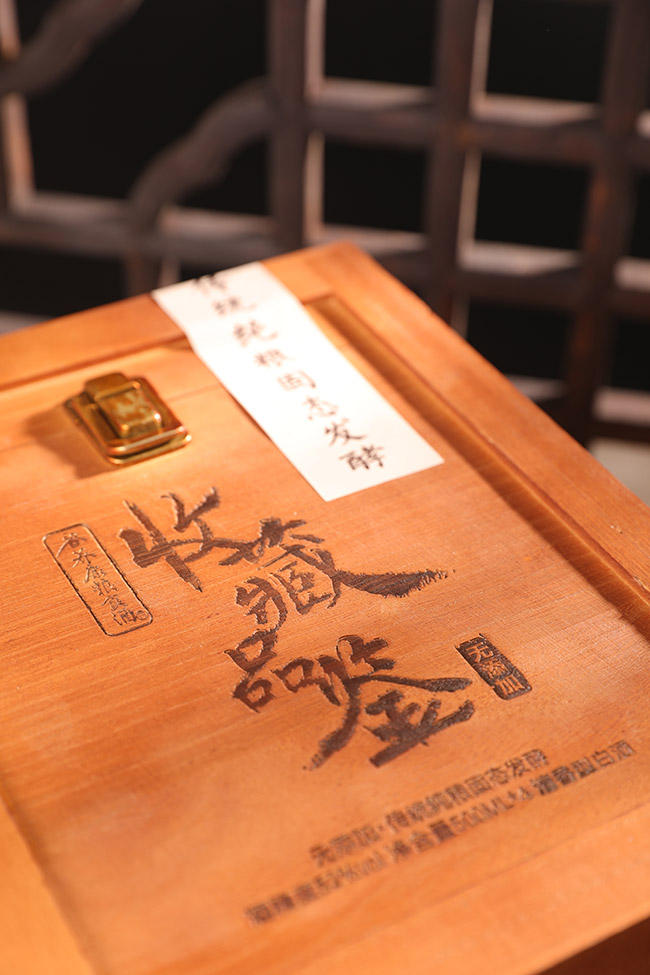 传统纯粮固态发酵
收藏
品鉴
无添加
无添加·传统纯粮固态发酵
酒精度53%vol 净含量500ML*4 清香型白酒